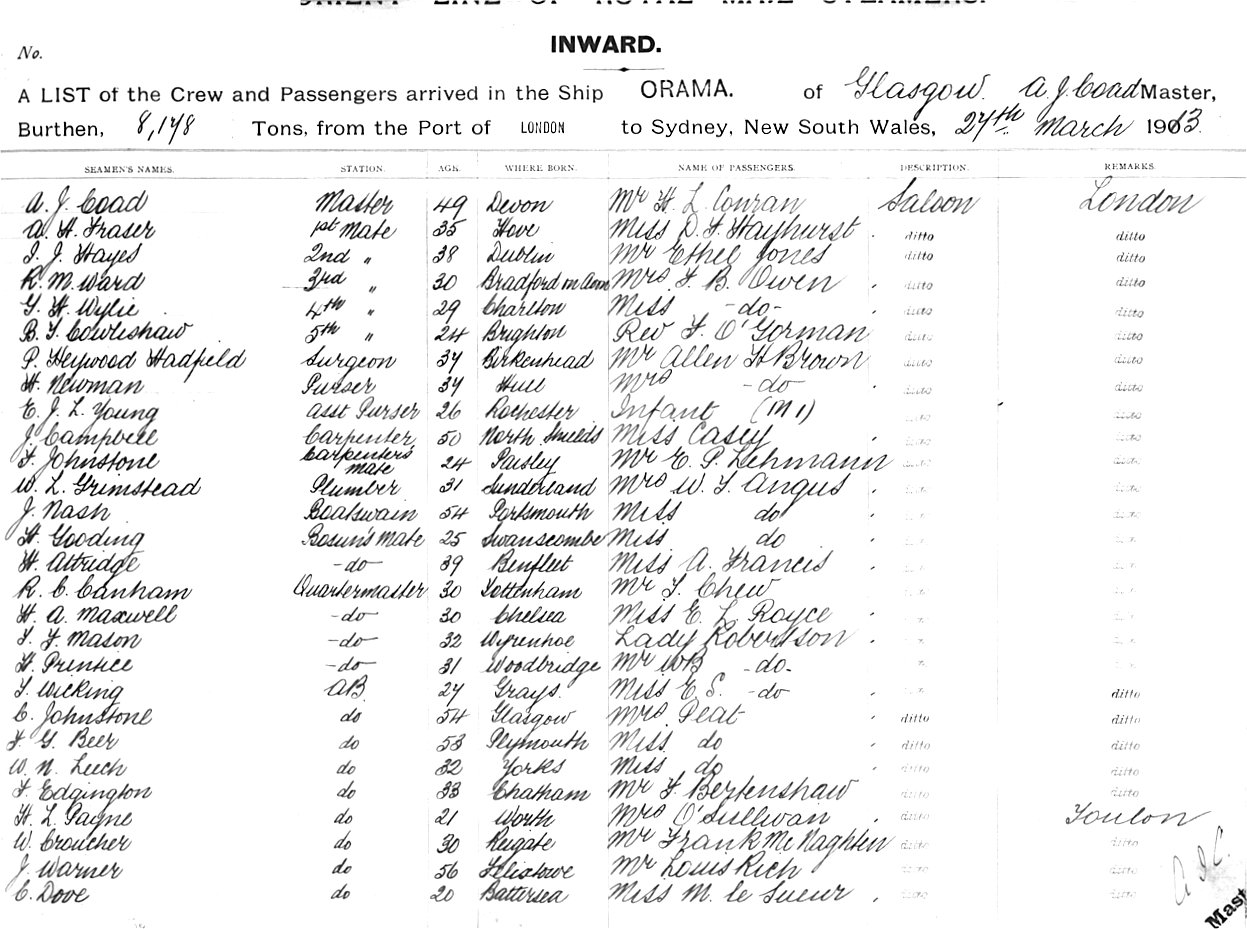 ORIENT LINE OF ROYAL MAIL STEAMERS.
No.
INWARD.
A LIST of the Crew and Passengers arrived in the Ship ORAMA. of Glasgow. A. J. Coad Master,
Burthen, 8,178 Tons, from the Port of LONDON to Sydney, New South Wales, 27th March 1913.
SEAMEN'S NAMES. STATION. AGE. WHERE BORN. NAME OF PASSENGERS. DESCRIPTION. REMARKS.
A. J. Coad Master 49 Devon Mr H. L. Conran Saloon London
A. H. Fraser 1st Mate 35 Hove Miss D. F. Hayhurst ditto ditto
J. J. Hayes 2nd " 38 Dublin Mr Ethel Jones ditto ditto
R. M. Ward 3rd " 30 Bradford on Avon Mrs F. B. Owen ditto ditto
G. H. Wylie 4th " 29 Charlton Miss -do- ditto ditto
B. T. Cowlishaw 5th " 24 Brighton Rev F. O'Gorman ditto ditto
P. Heywood Hadfield Surgeon 37 Birkenhead Mr Allen H Brown ditto ditto
H. Newman Purser 37 Hull Mrs -do ditto ditto
E. J. L. Young Asst Purser 26 Rochester Infant (M 1) ditto ditto
J. Campbell Carpenter 50 North Shields Miss Casey ditto ditto
F. Johnstone Carpenter's mate 24 Paisley Mr E. P. Lehmann ditto ditto
W. L. Grimstead Plumber 31 Sunderland Mrs W. F. Angus
J. Nash Boatswain 54 Portsmouth Miss do
H. Gooding Bosun's Mate 25 Swanscombe Miss do
H. Attridge -do- 39 Benfleet Miss A. Francis
R. C. Canham Quartermaster 30 Tottenham Mr T. Chew
H. A. Maxwell -do- 30 Chelsea Miss E. L. Royce
T. F. Mason -do- 32 Wyvenhoe Lady Robertson
H. Prentice -do- 31 Woodbridge Mr WB -do-
T. Wicking AB. 27 Grays. Miss E. S. -do ditto
C. Johnstone do 54 Glasgow Mrs Peat ditto ditto
F. G. Beer do 53 Plymouth Miss. do ditto ditto
W. N. Leech do 32 Yorks Miss do ditto ditto
F. Edgington do 33 Chatham Mr F Bertenshaw ditto ditto
H. L. Payne do 21 Worth Mrs O'Sullivan ditto Toulon
W. Croucher do 30 Reigate Mr Frank McNaghten ditto
J. Warner do 56 Felixtowe Mr Louis Rich ditto
C. Dove do 20 Battersea Miss M. le Sueur ditto ditto
Mast